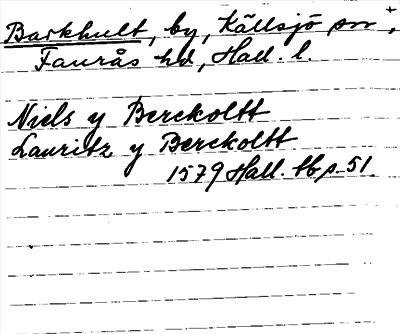 Barkhult, by, Källsjö sn,+
Faurås hd, Hall. l.
Niels y Berckoltt
Lauritz y Berckoltt
1579 Hall. tb p. 51.